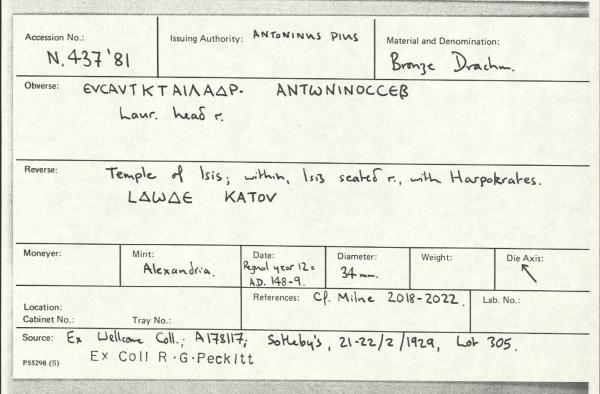 Accession No.: Issuing Authority: ANTONINUS PIUS Material and Denomination:
N.437'81 Bronze Drachm.
Obverse: ЄVCAVT KT AIΛAΔP. ANTѠNINOCCЄB
Laur. head r.
Reverse: Temple of Isis; within, Isis seated r., with Harpokrates.
LΔѠΔЄ KATOV
Moneyer: Mint: Date: Diameter: Weight: Die Axis:
Alexandria. Regnal year 12 = 34 mm. ↖
A.D. 148-9.
Location: References: Cf. Milne 2018-2022. Lab. No.:
Cabinet No.: Tray No.:
Source: Ex Wellcome Coll.; A178117; Sotheby's, 21-22/2/1929, Lot 305.
P55298 (S) Ex Coll R.G.Peckitt